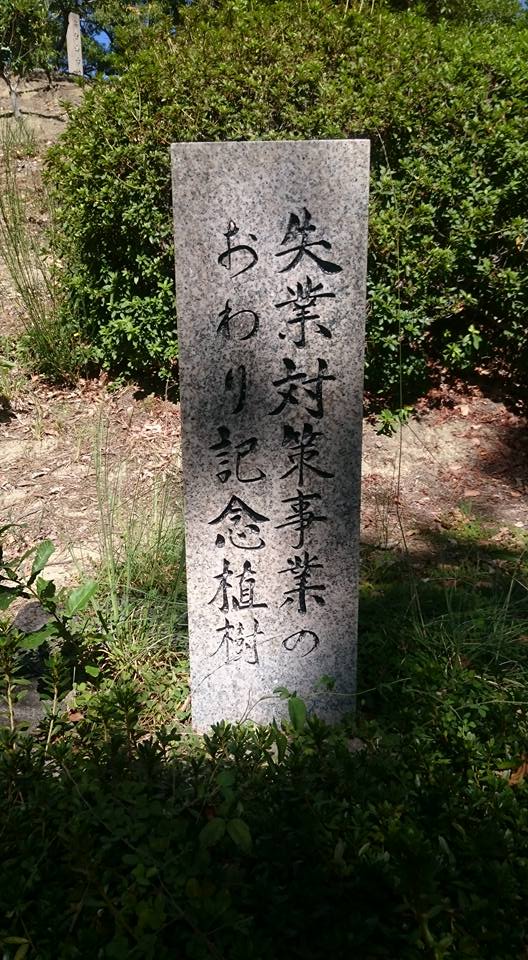 失業対策事業の
おわり記念植樹